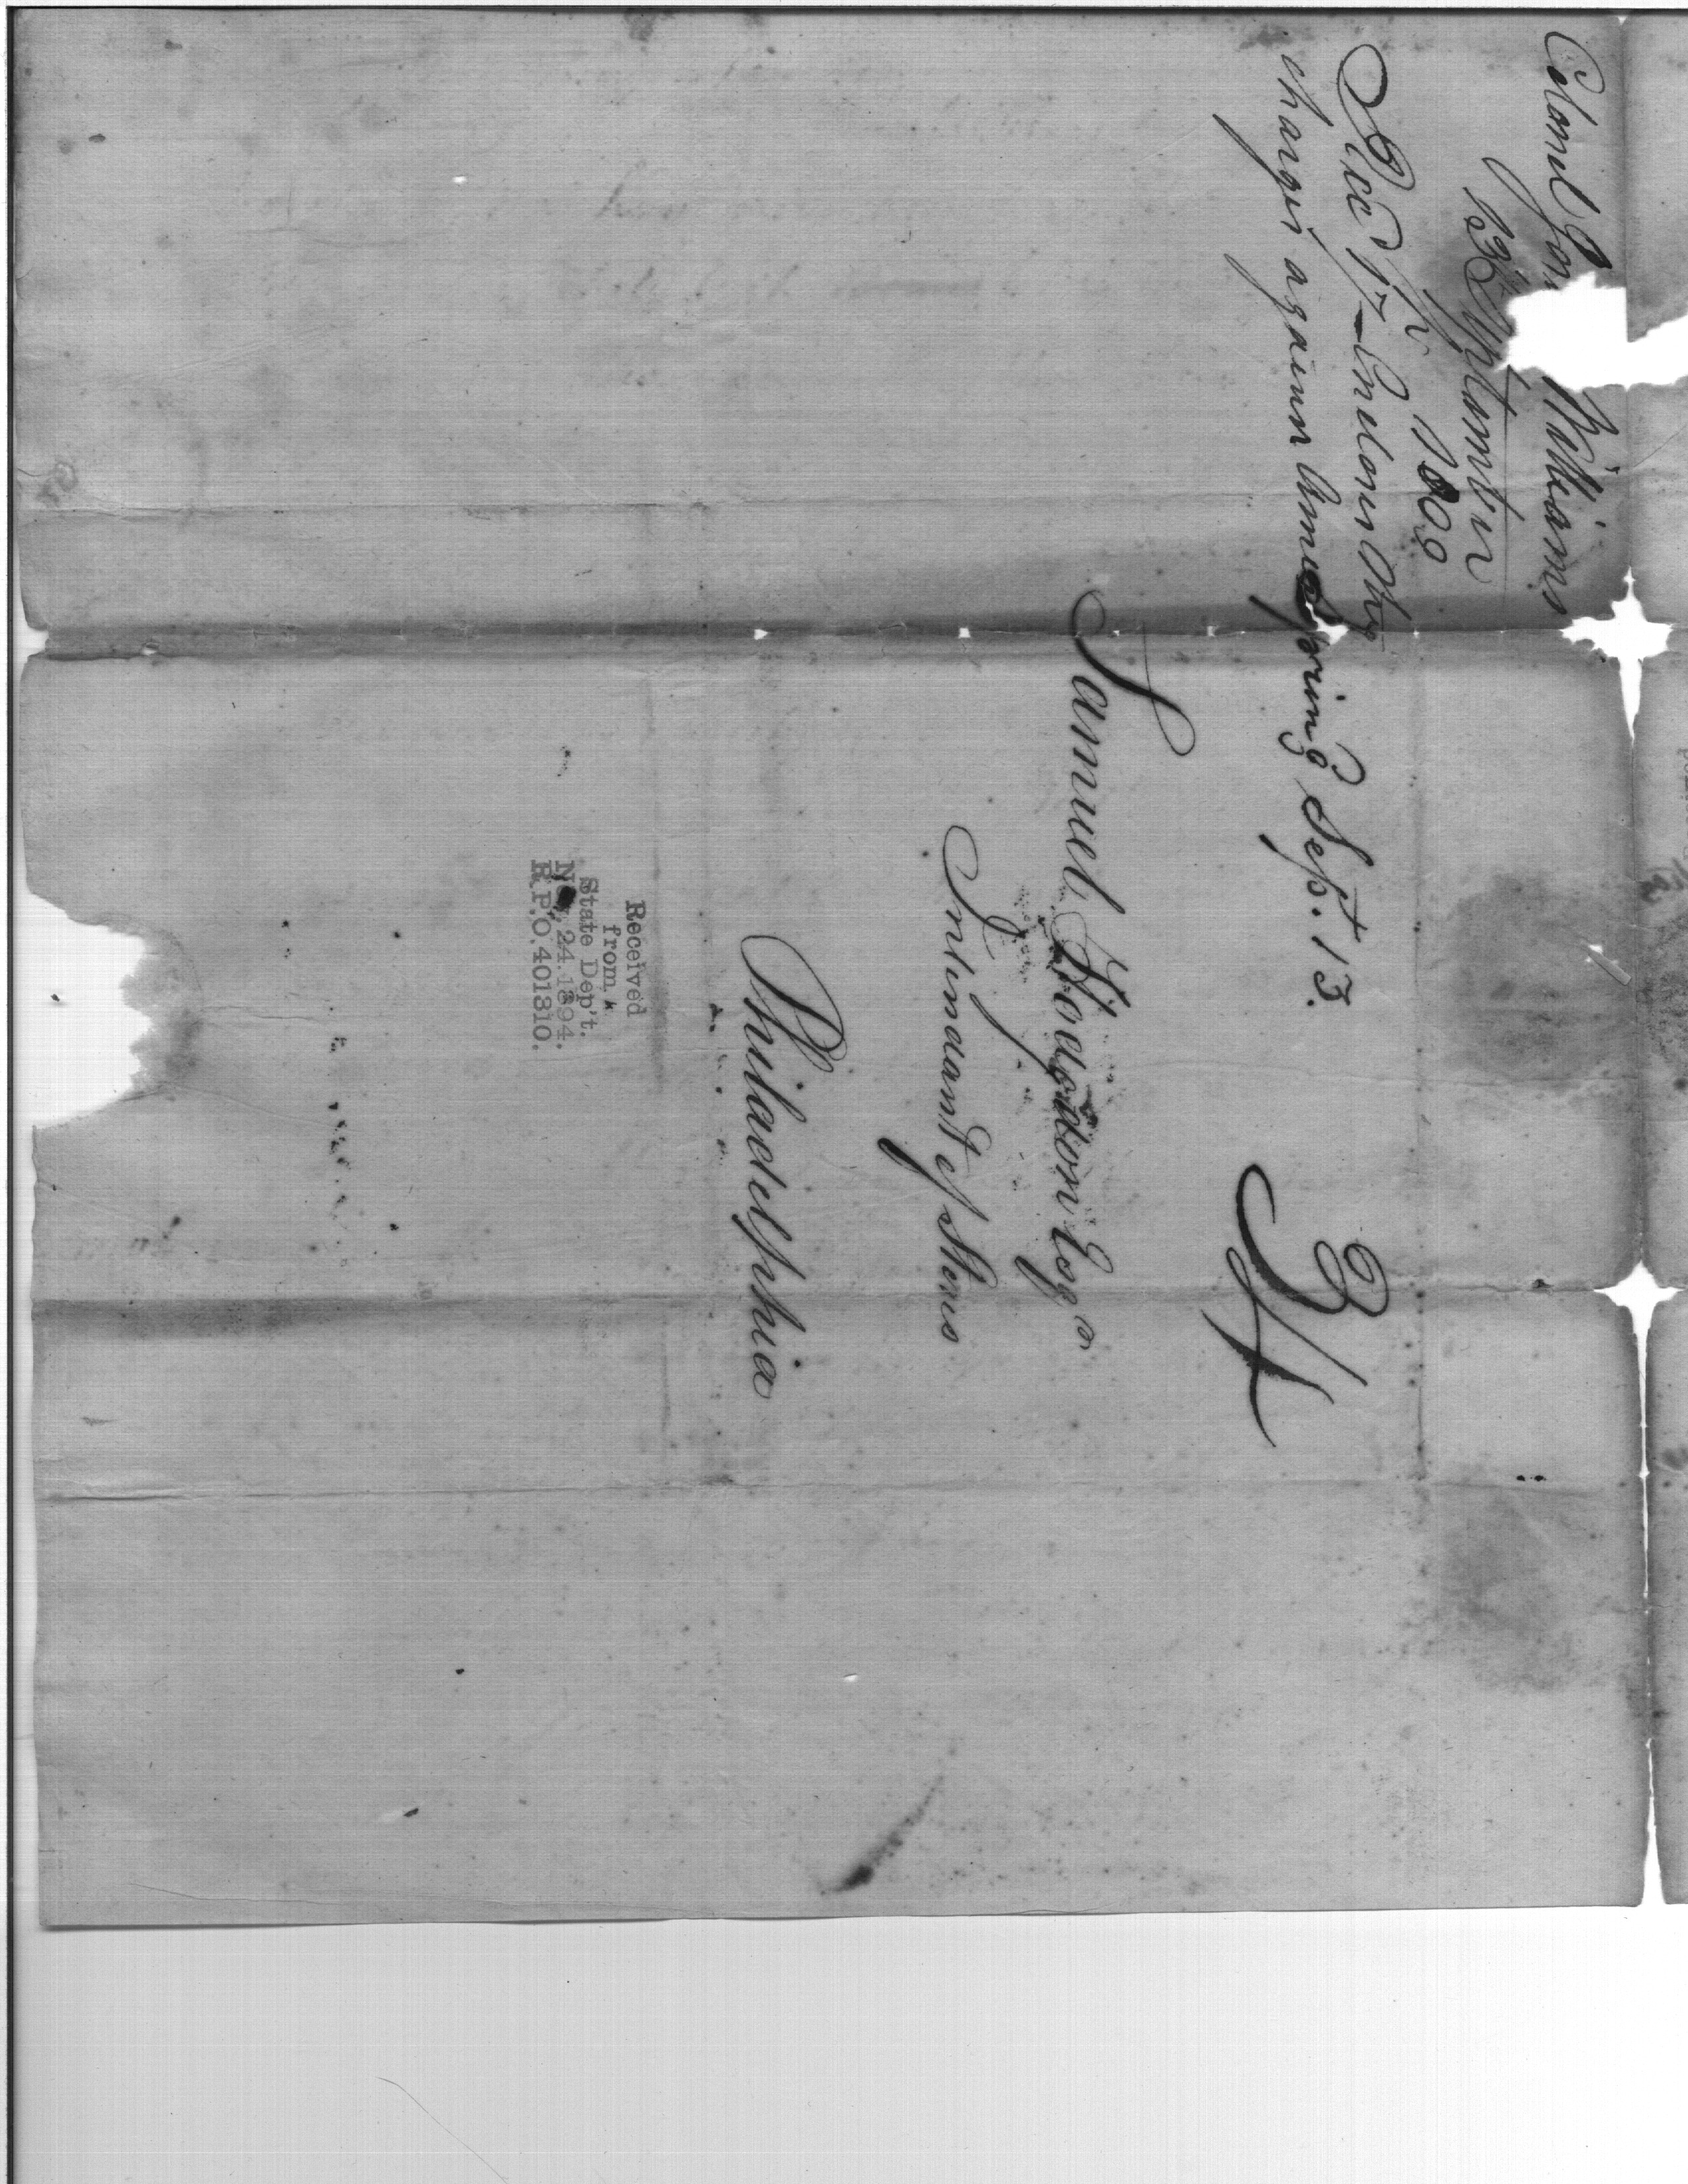 Colonel Jon Williams
13th September
1802
Recd 17 — Enclosing
charges against Amos
Spring Sep. 13.
34
Samuel Hodgdon Esqr
Intendant of Stores
Philadelphia
Received
from
State Dep't.
Nov. 24. 1894.
R.P.O. 401310.